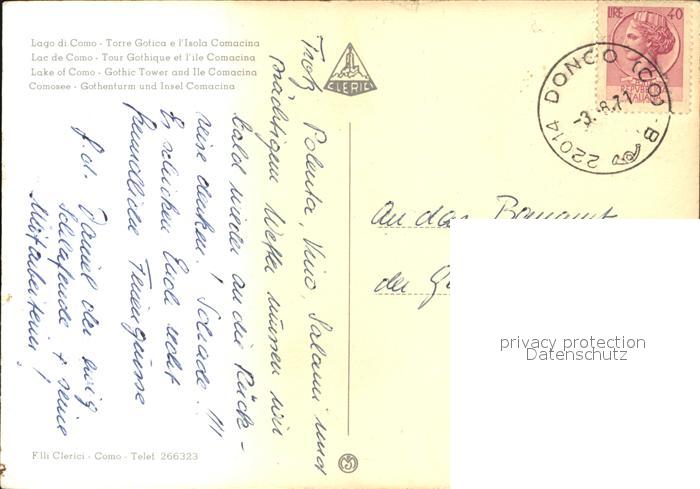 Lago di Como - Torre Gotica e l'Isola Comacina
Lac de Como - Tour Gothique et l'île Comacina
Lake of Como - Gothic Tower and Ile Comacina
Comosee - Gothenturm und Insel Comacina
CLERICI
LIRE 40
REPVBBLICA
ITALIANA
22014 DONGO (CO) B
-3.8.71
Trotz Polenta, Vino, Salami und
prächtigem Wetter müssen wir
bald wieder an die Rück-
reise denken! Schade!!!
Es schicken Euch recht
freundliche Feriengrüsse
Daniel der ewig
Schlafende + seine
Mitarbeiterin!
An das Bauamt
der
privacy protection
Datenschutz
F.lli Clerici - Como - Telef 266323